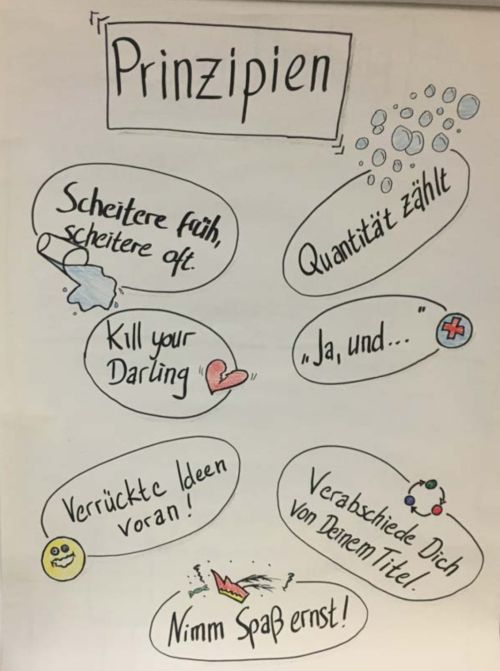 Prinzipien
Scheitere früh,
scheitere oft.
Quantität zählt
Kill your
Darling
„Ja, und..."
Verrückte Ideen
voran!
Verabschiede Dich
von Deinem Titel.
Nimm Spaß ernst!